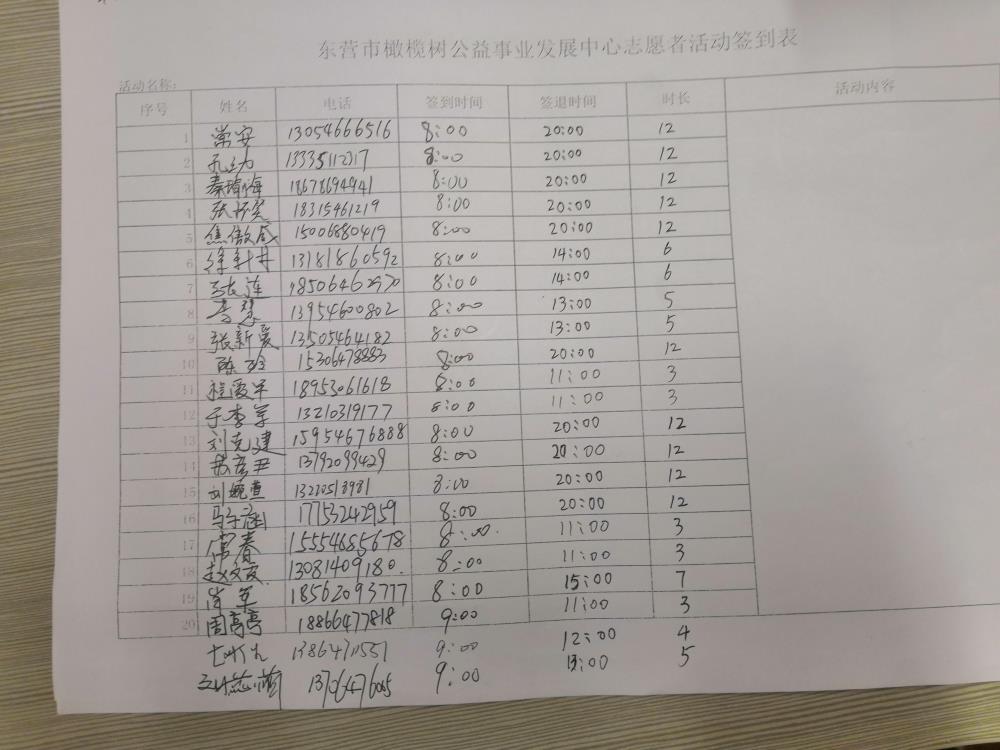 东营市橄榄树公益事业发展中心志愿者活动签到表
活动名称:
序号 姓名 电话 签到时间 签退时间 时长 活动内容
1 常安 13054666516 8:00 20:00 12
2 8:00 20:00 12
3 秦瑜梅 18678694941 8:00 20:00 12
4 18315461219 8:00 20:00 12
5 焦傲成 15006880419 8:00 20:00 12
6 13181860592 8:00 14:00 6
7 张莲 18506462970 8:00 14:00 6
8 李慧 13954600802 8:00 13:00 5
9 张新爱 13505464182 8:00 13:00 5
10 陈玲 15306478883 8:00 20:00 12
11 程爱军 18953061618 8:00 11:00 3
12 于李军 13210319177 8:00 11:00 3
13 刘克建 15954676888 8:00 20:00 12
14 13792099429 8:00 20:00 12
15 8:00 20:00 12
16 马子涵 17153242959 8:00 20:00 12
17 常春 15554685678 8:00 11:00 3
18 13081409180 8:00 11:00 3
19 肖军 18562093777 8:00 15:00 7
20 周亭亭 18866477818 9:00 11:00 3
9:00 12:00 4
9:00 13:00 5